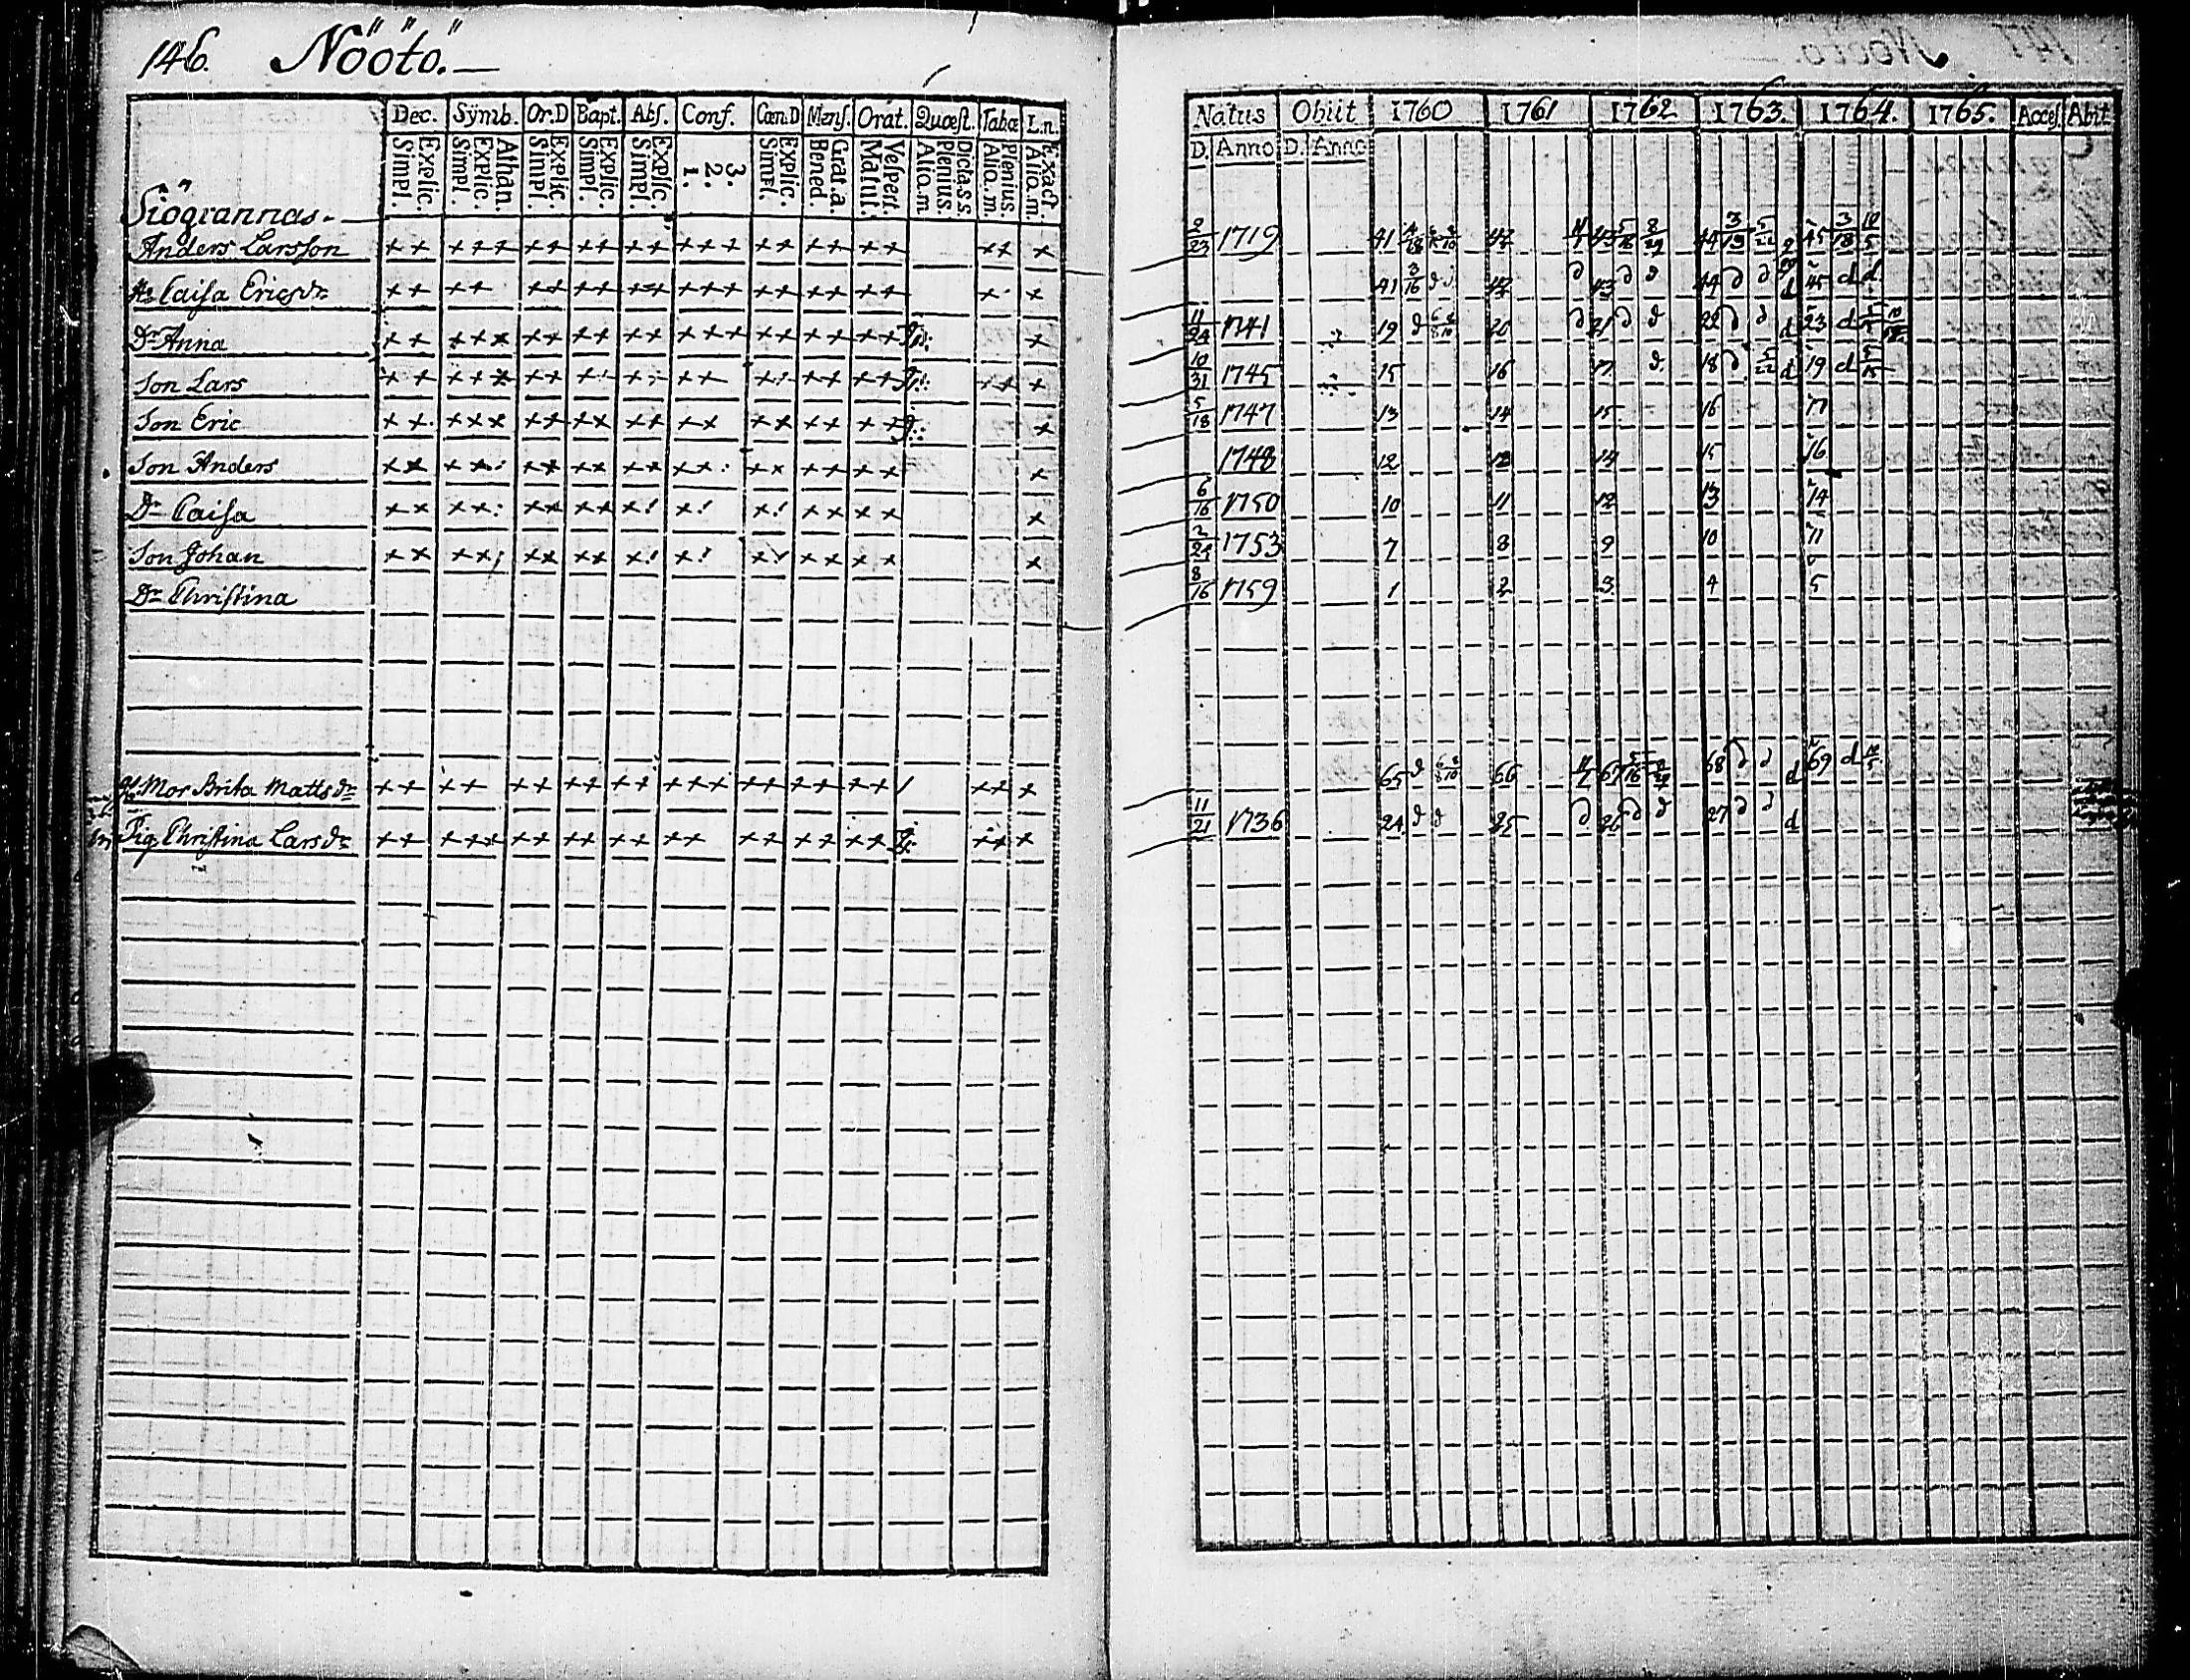 146. Nöötö.
Dec. Sÿmb. Or.D Bapt. Abſ. Conf. Cœn.D Menſ. Orat. Quœſt. Tabœ L.n.
Explic. Simpl. Athan. Explic. Simpl. Explic. Simpl. Explic. Simpl. Explic. Simpl. 3. 2. 1. Explic. Simpl. Grat.a. Bened. Veſpert. Matut. Dicta.s.s. Plenius. Alio.m. Plenius. Alio.m. Exact. Alio.m.
Siögrannas.
Anders Larsſon ++ +++ ++ ++ ++ +++ ++ ++ ++ ++ +
H. Caiſa Ericsdr ++ ++ ++ ++ ++ +++ ++ ++ ++ + +
Dr Anna ++ +++ ++ ++ ++ +++ ++ ++ ++ +
Son Lars ++ +++ ++ ++ ++ ++ ++ ++ +
Son Eric ++ +++ ++ ++ ++ ++ ++ ++ ++ +
Son Anders ++ ++ ++ ++ ++ ++ ++ ++ ++ +
Dr Caiſa ++ ++ ++ ++ + + + ++ ++ +
Son Johan ++ ++ ++ ++ + + + ++ ++ +
Dr Chriſtina
Mor Brita Mattsdr ++ ++ ++ ++ ++ +++ ++ ++ ++ ++ +
Pig. Chriſtina Larsdr ++ +++ ++ ++ ++ ++ ++ ++ ++ ++ +
Natus Obiit 1760 1761 1762 1763. 1764. 1765. Acceſ. Abit
D. Anno D. Anno
2/23 1719 41 42 43 5/16 8/29 44 3/13 5/22 45 3/18 10/5
41 3/16 d d 42 d 43 d d 44 d d d 45 d d
11/24 1741 19 d 20 d 21 d d 22 d d d 23 d
10/31 1745 15 16 17 d 18 d 5/22 d 19 d 5/15
5/18 1747 13 14 15 16 17
1748 12 13 14 15 16
6/16 1750 10 11 12 13 14
2/24 1753 7 8 9 10 11
8/16 1759 1 2 3 4 5
65 d 66 67 5/16 8/29 68 d d d 69 d 10/5
11/21 1736 24 d d 25 d 26 d d 27 d d d